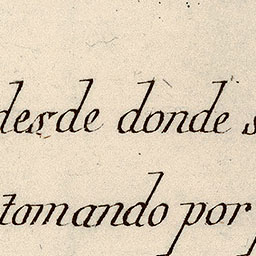 desde donde s
tomando por